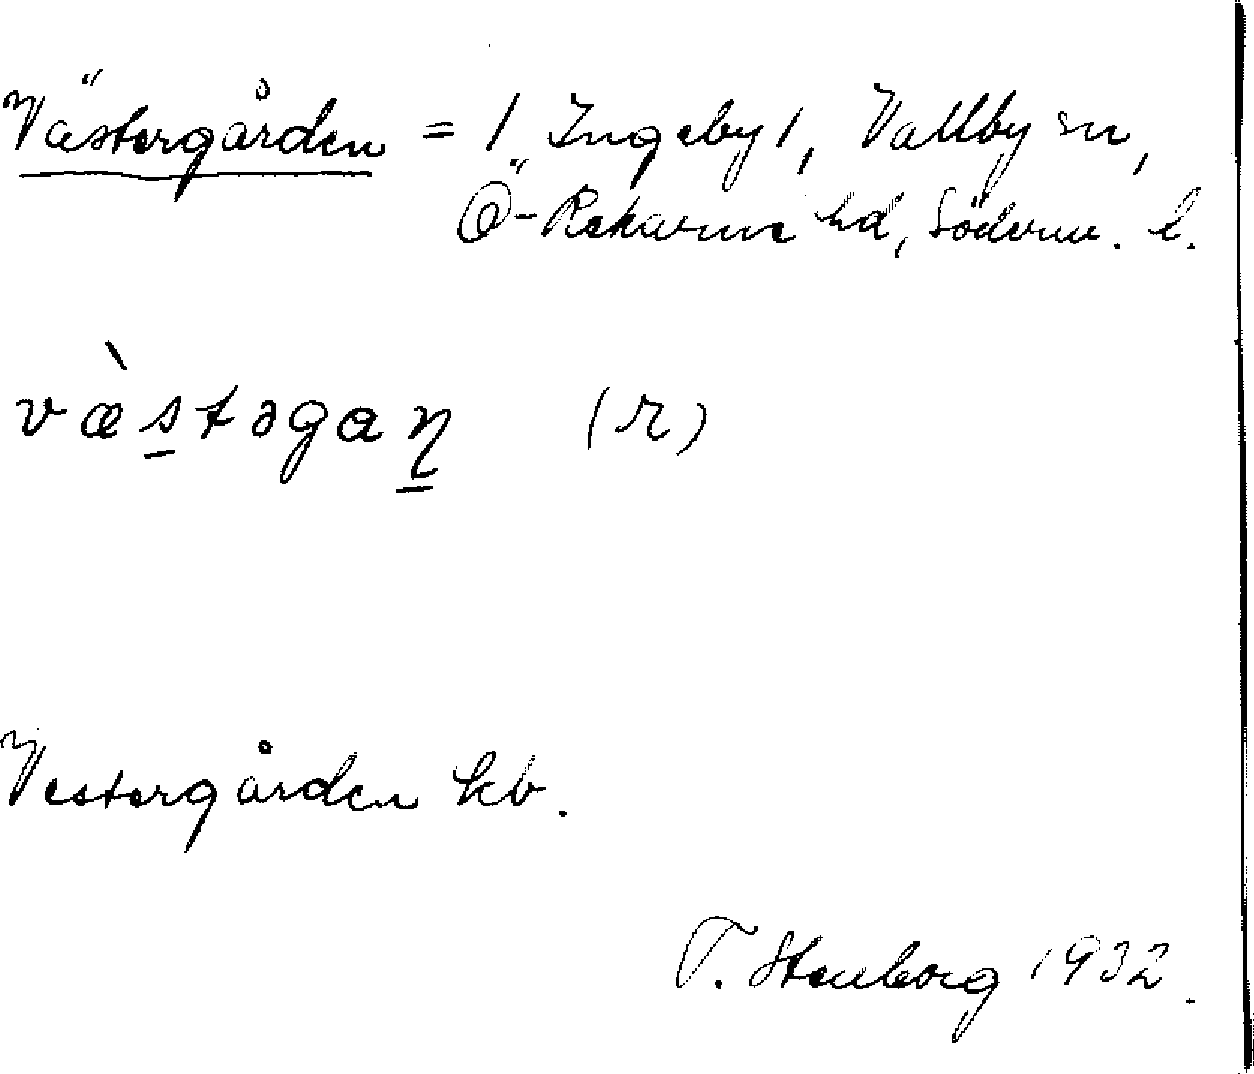 Västergården = / Ingeby 1, Vallby sn,
Ö-Rekarne hd, Söderm. l.
væ̀s̲təgaɳ̲ (r)
Vestergården kb.
T. Stenborg 1932.